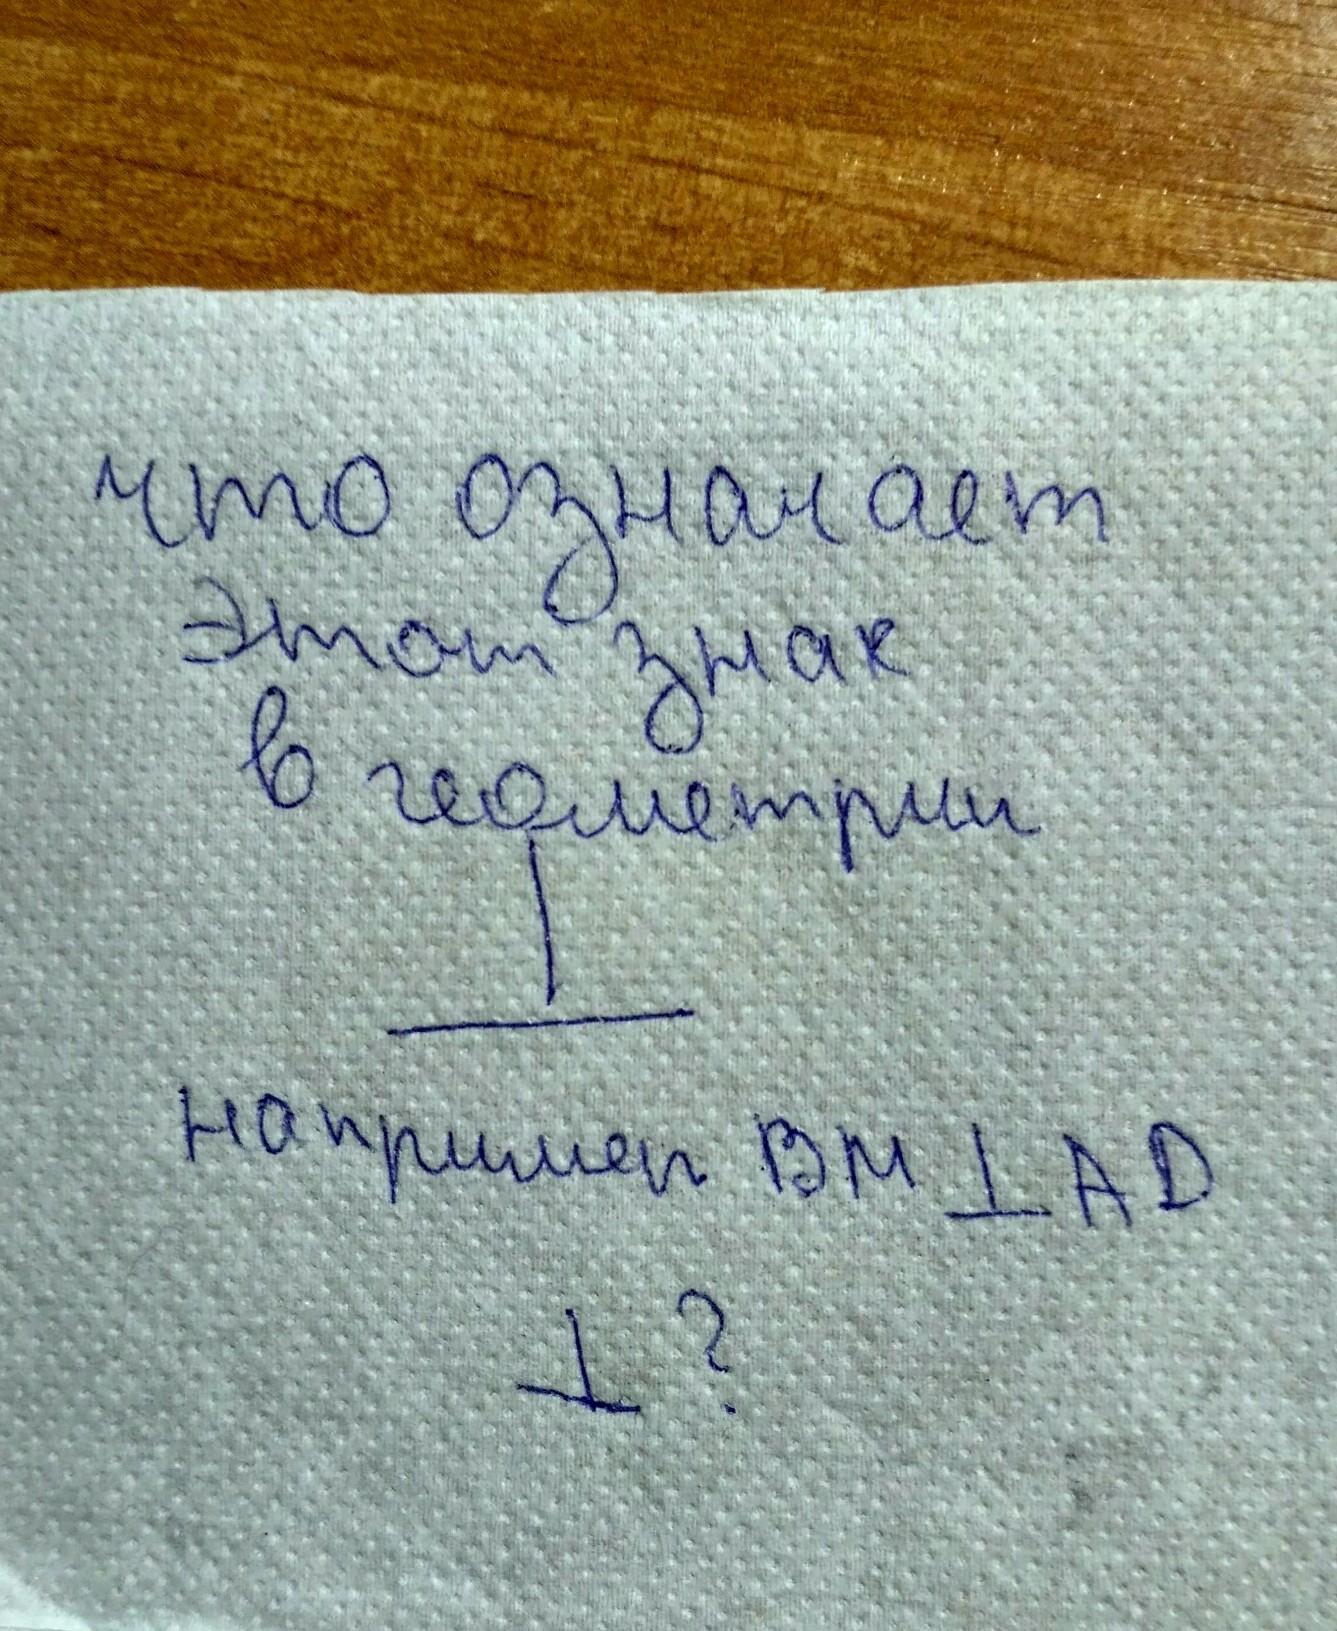 что означает
этот знак
в геометрии
⊥
например BM ⊥ AD
⊥ ?